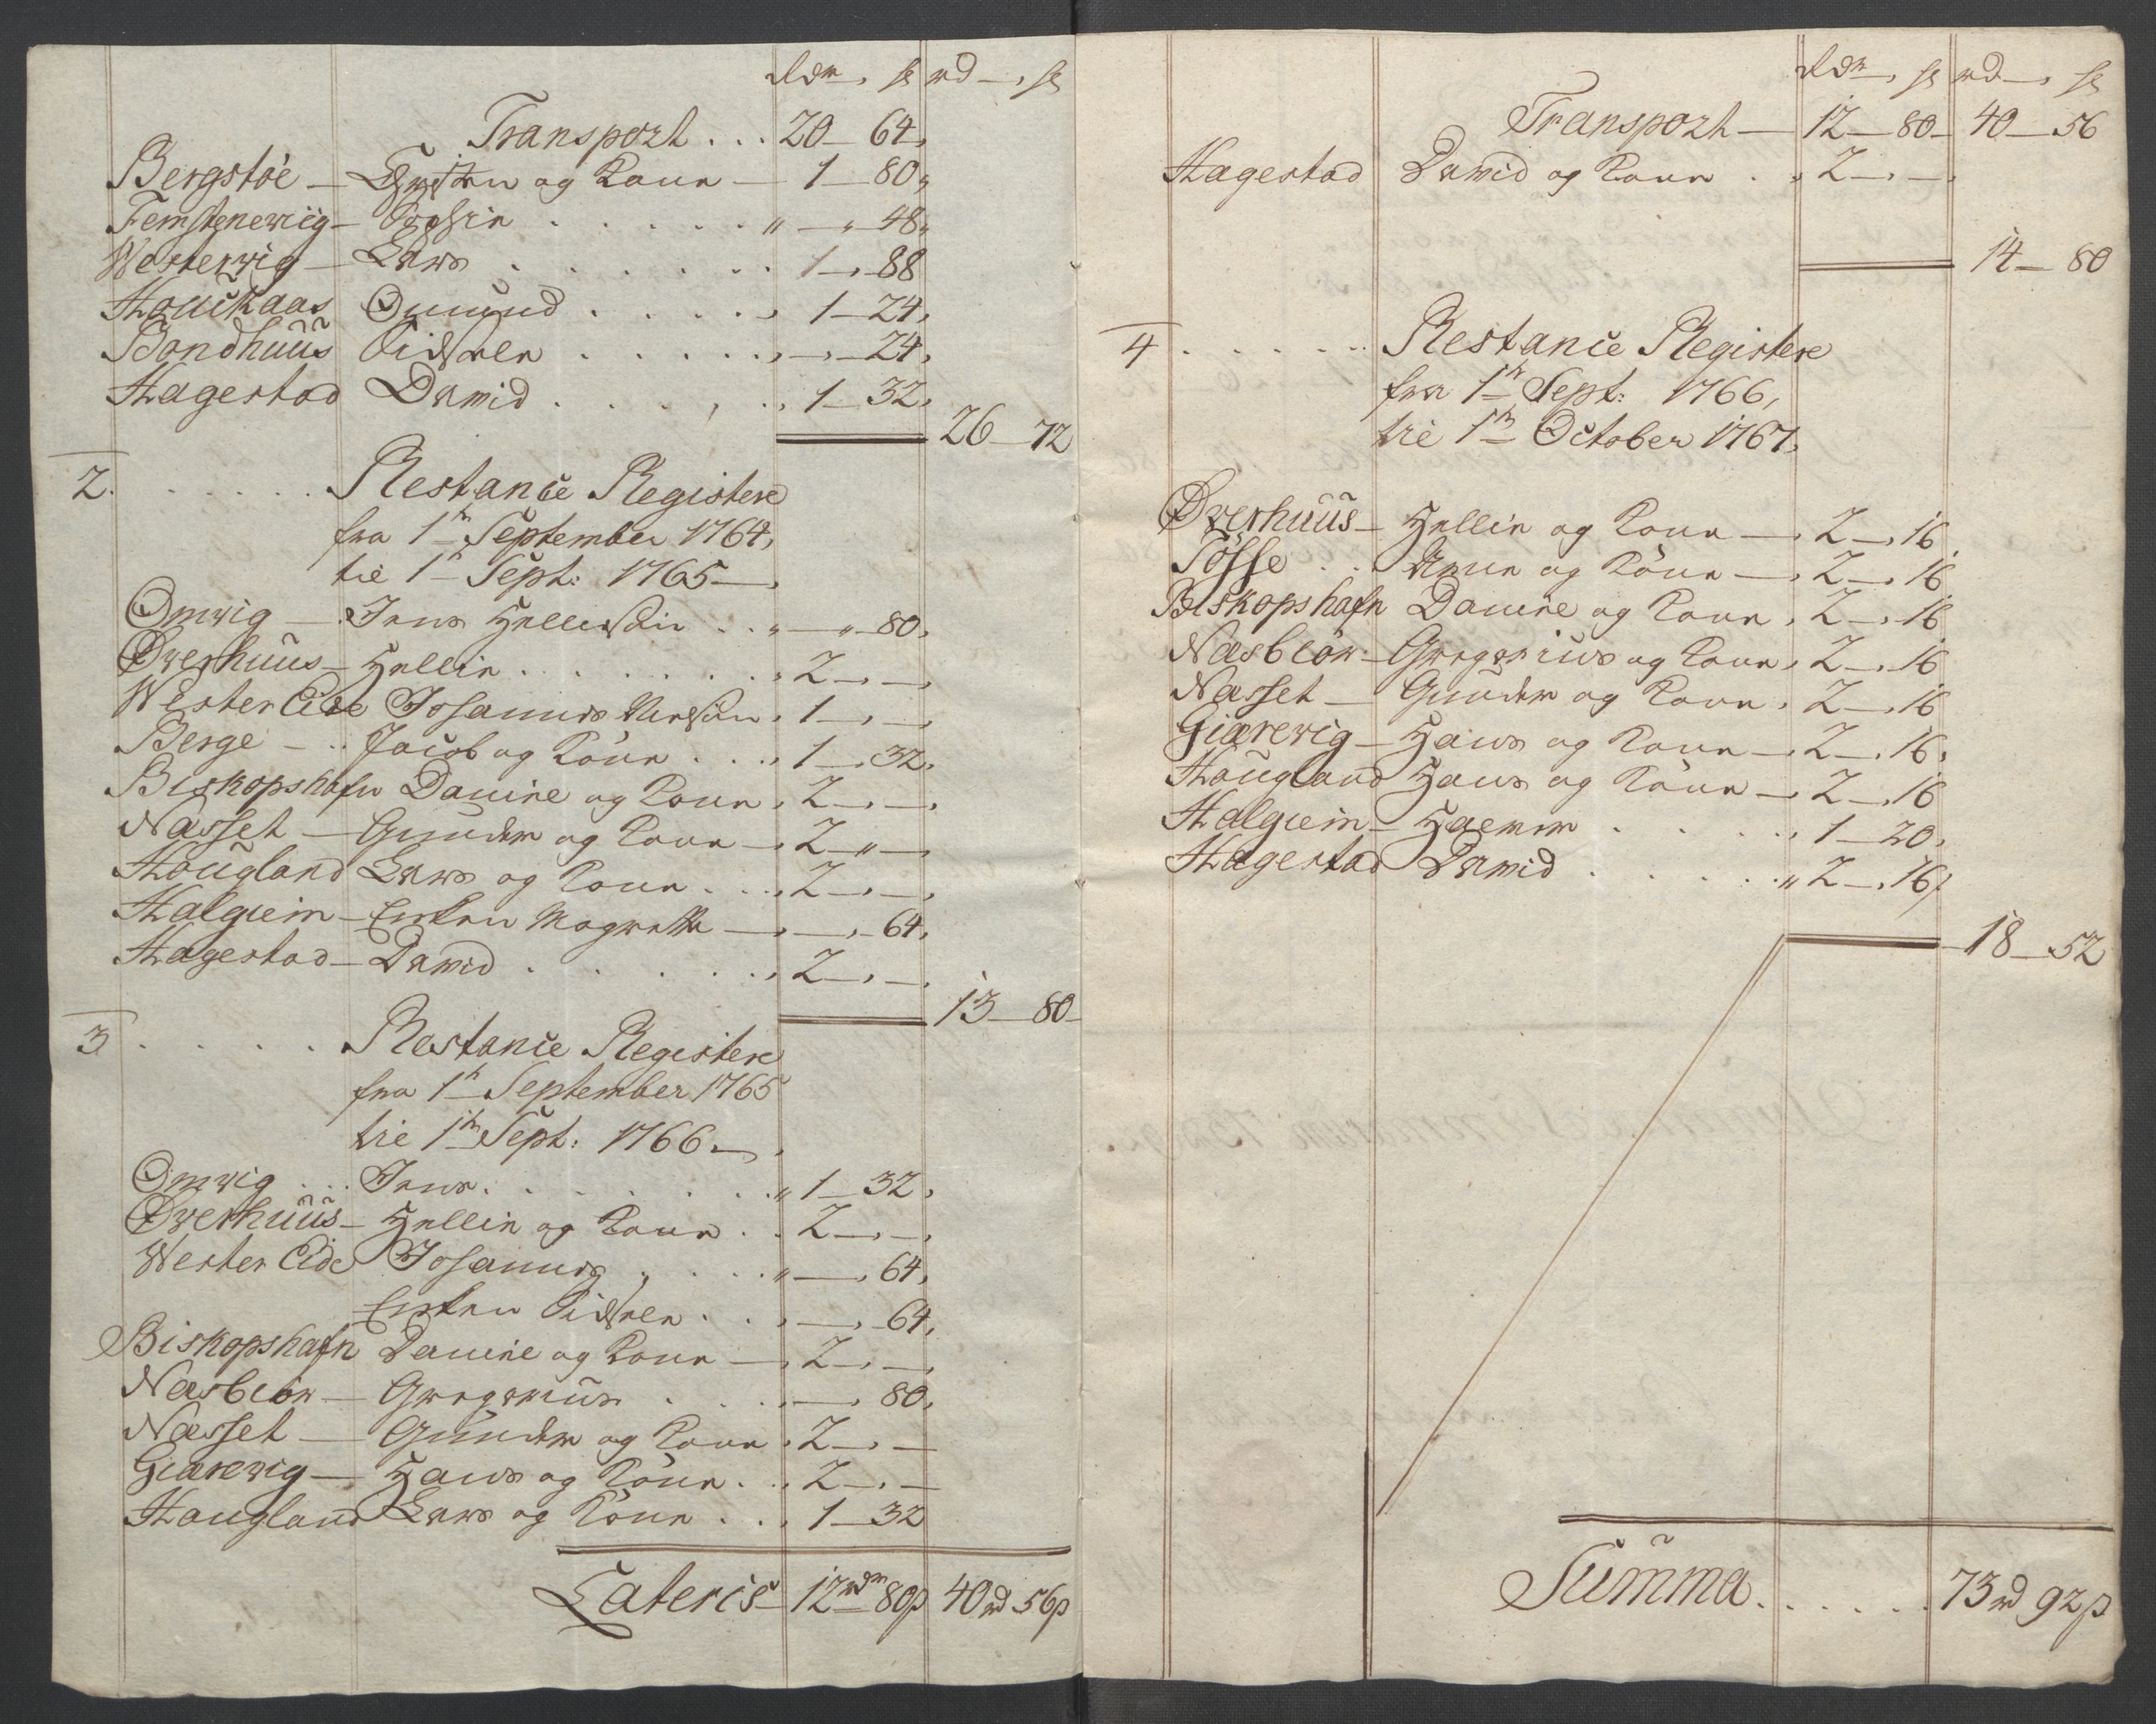 Rdr , s rd , s
Transport . . . 20 – 64,
Bergstöe – Christen og Kone – 1 – 80,
Femstenewiig – . . . . . " – " 48,
Westerwig – Lars . . . . . . 1 – , 88
Houckaas Omund . . . . . , 1 – 24,
Bondhuus . . . . . , – , 24,
Hagestad David . . . . , . , 1 – 32,
26 – 72
2. . . . . . Restance Register
fra 1te September 1764,
til 1te Sept: 1765 – ,
Omwig – Jens Hellissen . . " – " 80,
Øverhuus – Hellie . . . . . . . , 2 – , – ,
Wester Eide Johannes , 1 – , – ,
Berge – . . Jacob og Kone . . . , 1 – , 32,
Biskopshafn Daniel og Kone , 2 – , – ,
Nasset – Gunder og Kone – , 2 – " –
Hougland Lars og Kone . . . , 2 – , – ,
Halgiem – Enken Magrethe – , – , – 64,
Hagestad – David . . . . . . , 2 – , – ,
13 – 80 –
3 . . . . . Restance Register
fra 1te September 1765
til 1te Sept: 1766 – ,
Omwig . . . Jens . . . . . . . " 1 – 32,
Øverhuus – Hellie og Kone . . 2 – , – ,
Wester Eide Johannes , . . . . " – , 64,
Enken . . , – , 64,
Biskopshafn Daniel og Kone – , 2 – , – ,
Næsbiör – Gregorius . . . , – , 80,
Nasset – Gunder og Kone , 2 – , –
Giærevig – Hans og Kone . . , 2 – , –
Hougland Lars og Kone . . , 1 – 32
Lateris 12rdr 80s 40rd 56s
Rdr , s rd , s
Transport – 12 – 80 – 40 – 56
Hagestad David og Kone . , 2 – , – ,
14 – 80
4 . . . . . . Restance Register
fra 1te Sept: 1766,
til 1te October 1767,
Øverhuus – Hellie og Kone – , 2 – , 16
Tösse . . Arne og Kone – , 2 – , 16
Biskopshafn Daniel og Kone , 2 – , 16
Næsbiör – Gregorius og Kone , 2 – , 16
Nasset – Gunder og Kone , 2 – , 16
Giærevig – Hans og Kone – , 2 – , 16,
Hougland Hans og Kone – , 2 – , 16
Halgiem – . . . . . , 1 – 20,
Hagestad David . . . . . " 2 – , 16,
18 – 52
Summa . . . . . . 73rd 92s